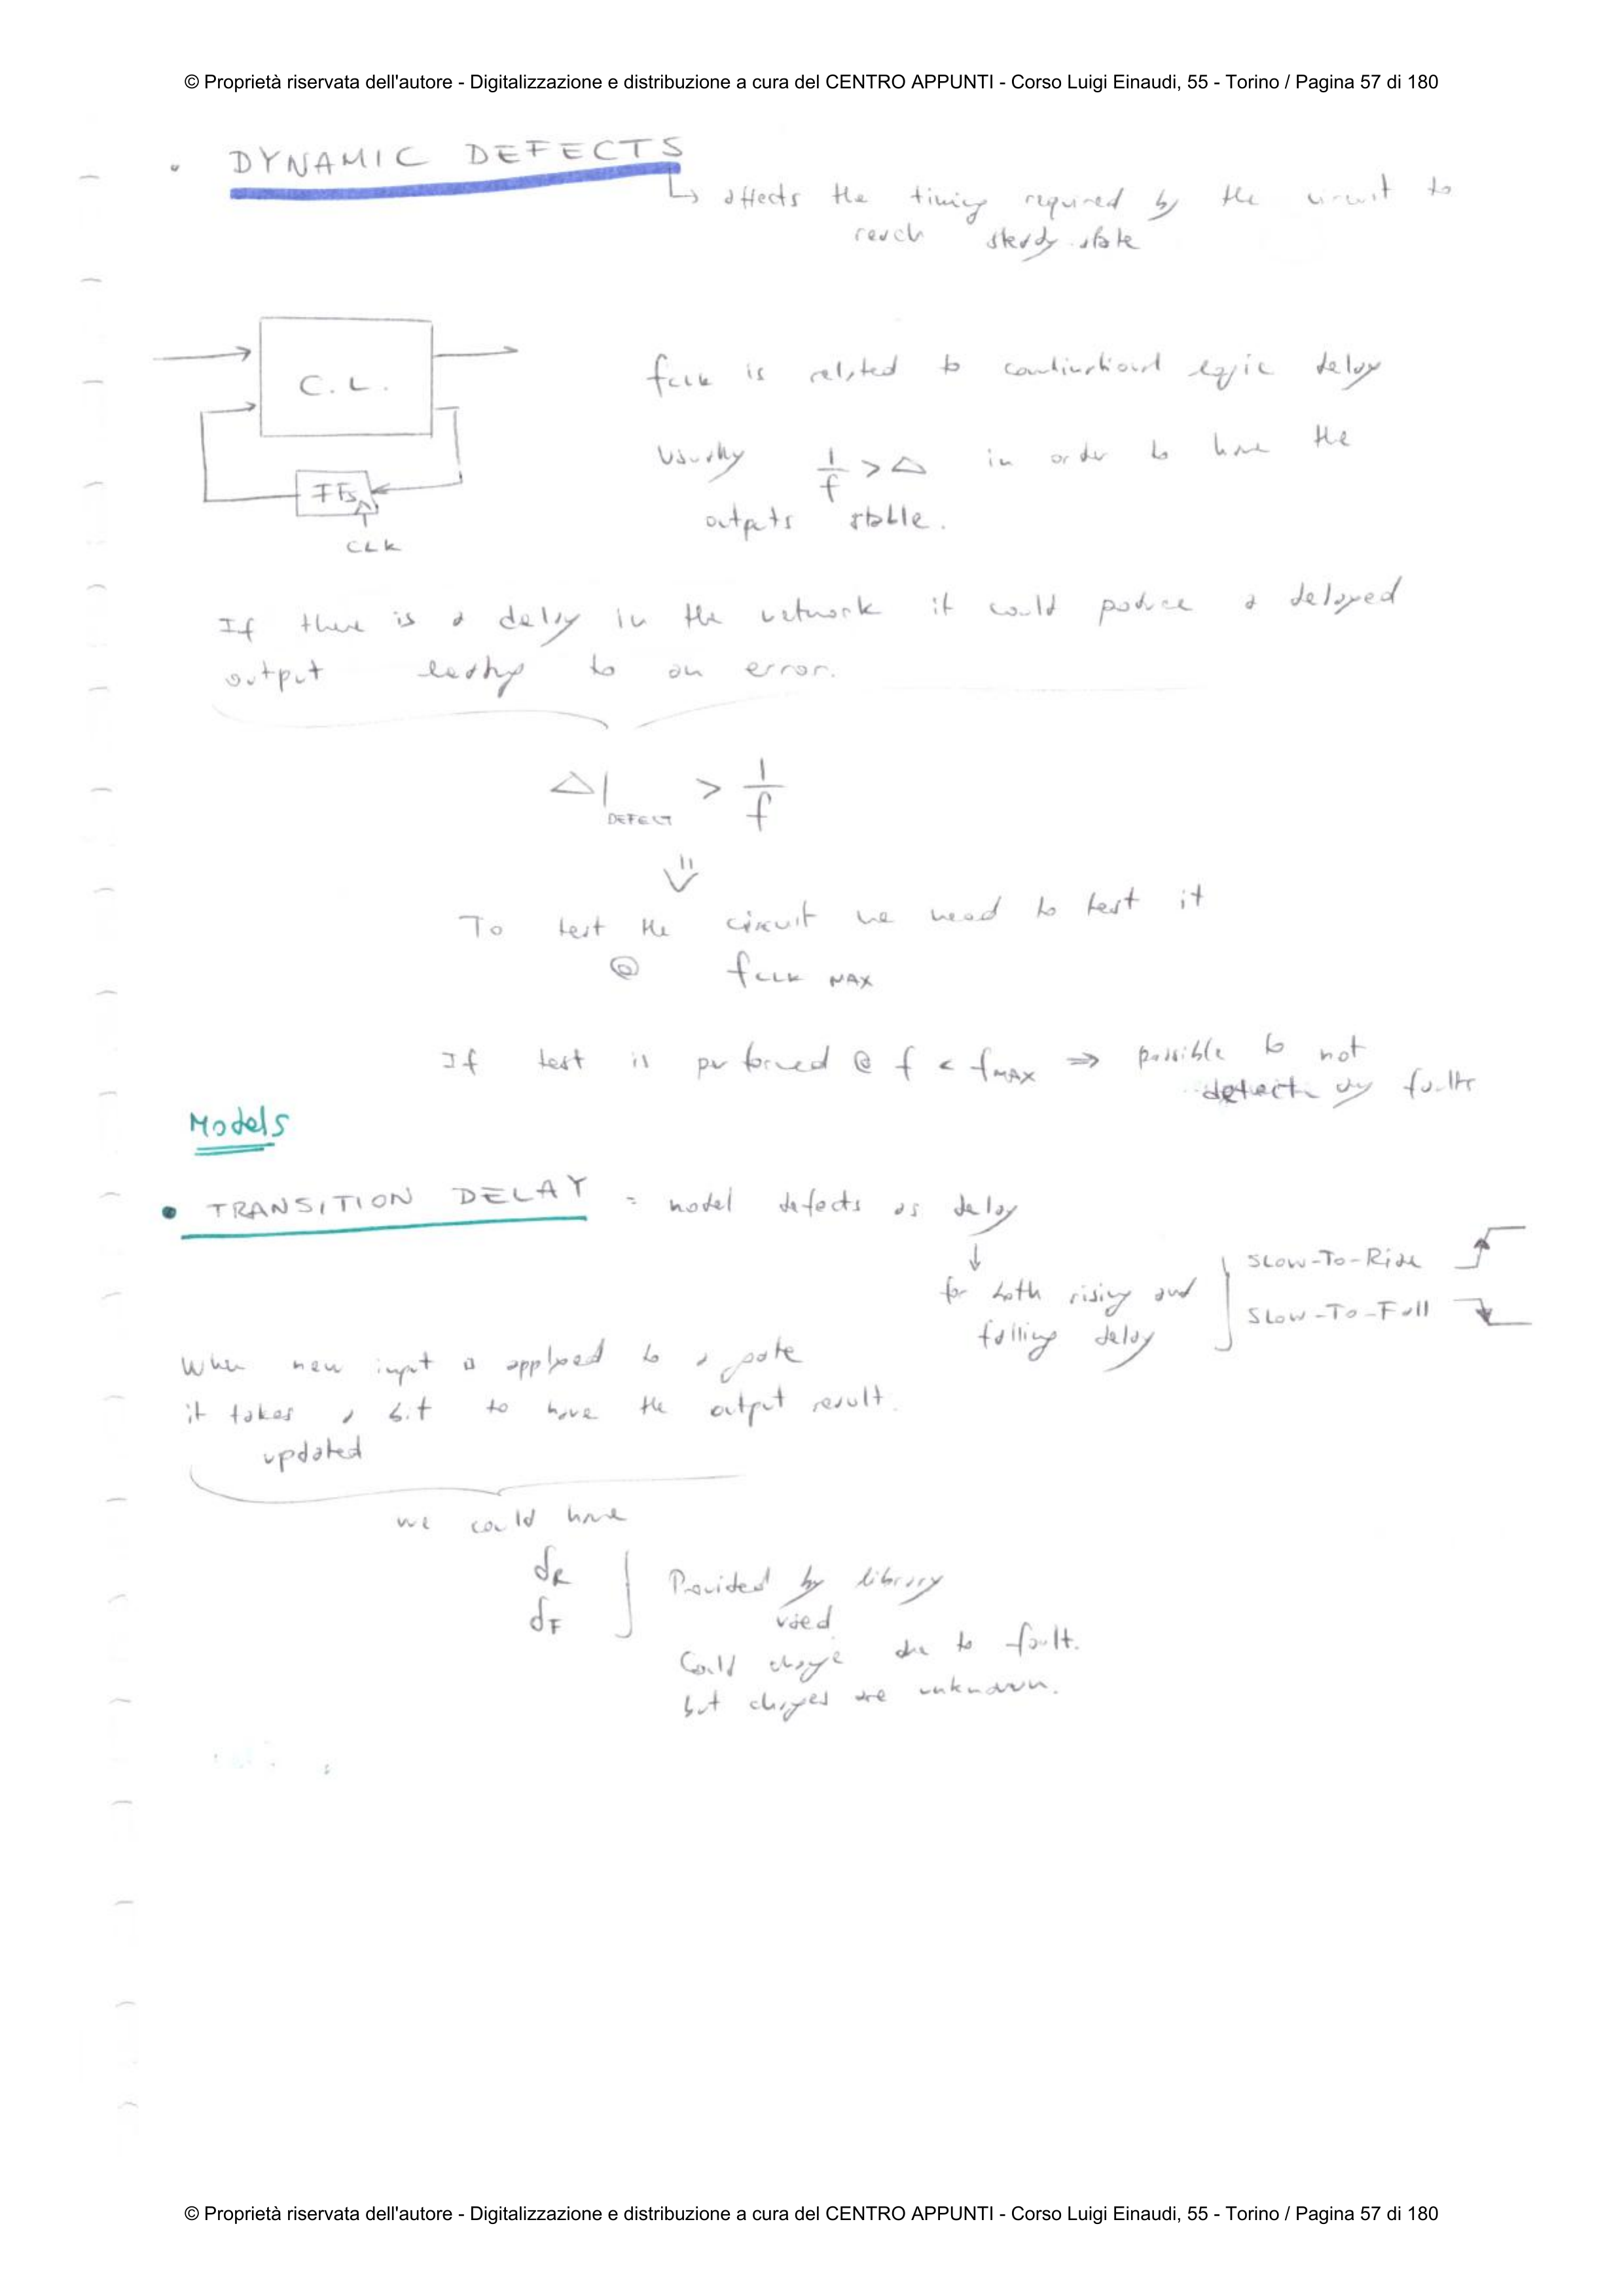 © Proprietà riservata dell'autore - Digitalizzazione e distribuzione a cura del CENTRO APPUNTI - Corso Luigi Einaudi, 55 - Torino / Pagina 57 di 180
• DYNAMIC DEFECTS
↳ affects the timing required by the circuit to
reach steady state
C.L.
FFs
CLK
fCLK is related to combinational logic delay
Usually 1/f > Δ in order to have the
outputs stable.
If there is a delay in the network it could poduce a delayed
output leading to an error.
Δ|DEFECT > 1/f
⇓
To test the circuit we need to test it
@ fCLK MAX
If test is performed @ f < fMAX ⇒ possible to not
detect any faults
Models
• TRANSITION DELAY = model defects as delay
↓
for both rising and
falling delay
SLOW-TO-Rise
SLOW-TO-Fall
When new input is applyed to a gate
it takes a bit to have the output result.
updated
we could have
dR
dF
Provided by library
used
Could change due to fault.
but changes are unknown.
© Proprietà riservata dell'autore - Digitalizzazione e distribuzione a cura del CENTRO APPUNTI - Corso Luigi Einaudi, 55 - Torino / Pagina 57 di 180